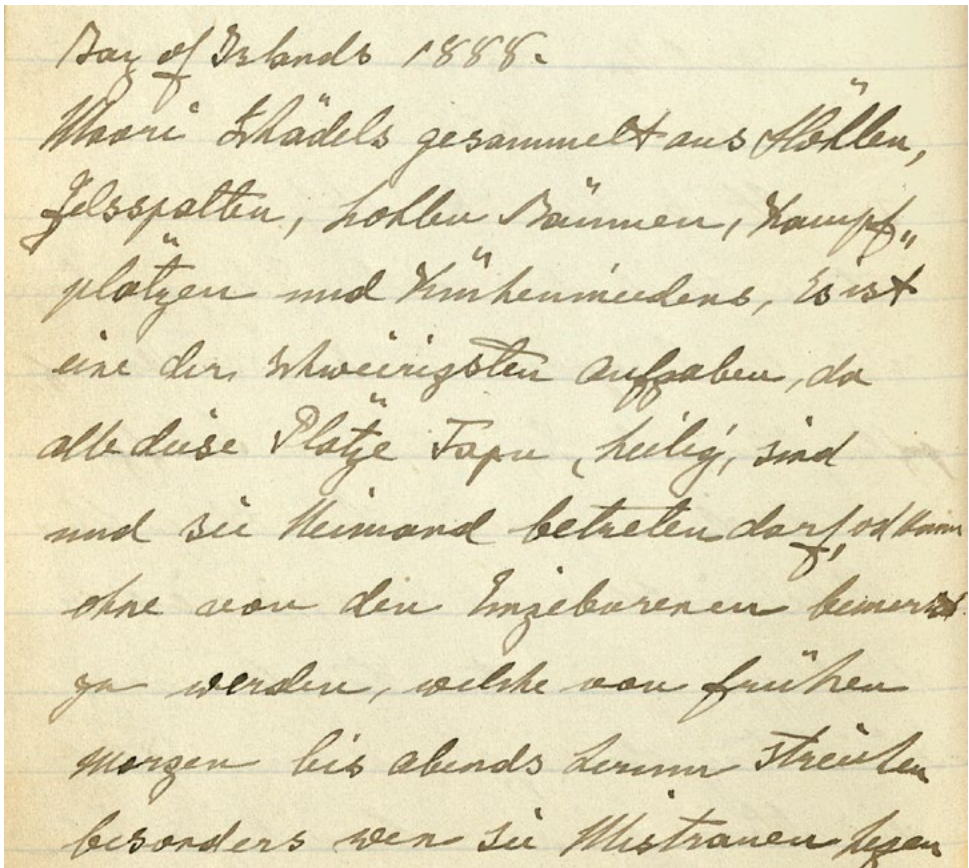 Bay of Islands 1888.
Maori Schädels gesammelt aus Höhlen,
Felsspalten, hohlen Bäumen, Kampf„
plätzen und Küchenmiedens, Es ist
eine der schweirigsten Aufgaben, da
alle diese Plätze Tapu, heilig, sind
und sie Neimand betreten darf, od kann
ohne von den Eingeborenen bemerkt
zu werden, welche von frühen
morgen bis abends herum streichen
besonders wen sie Mistrauen hegen